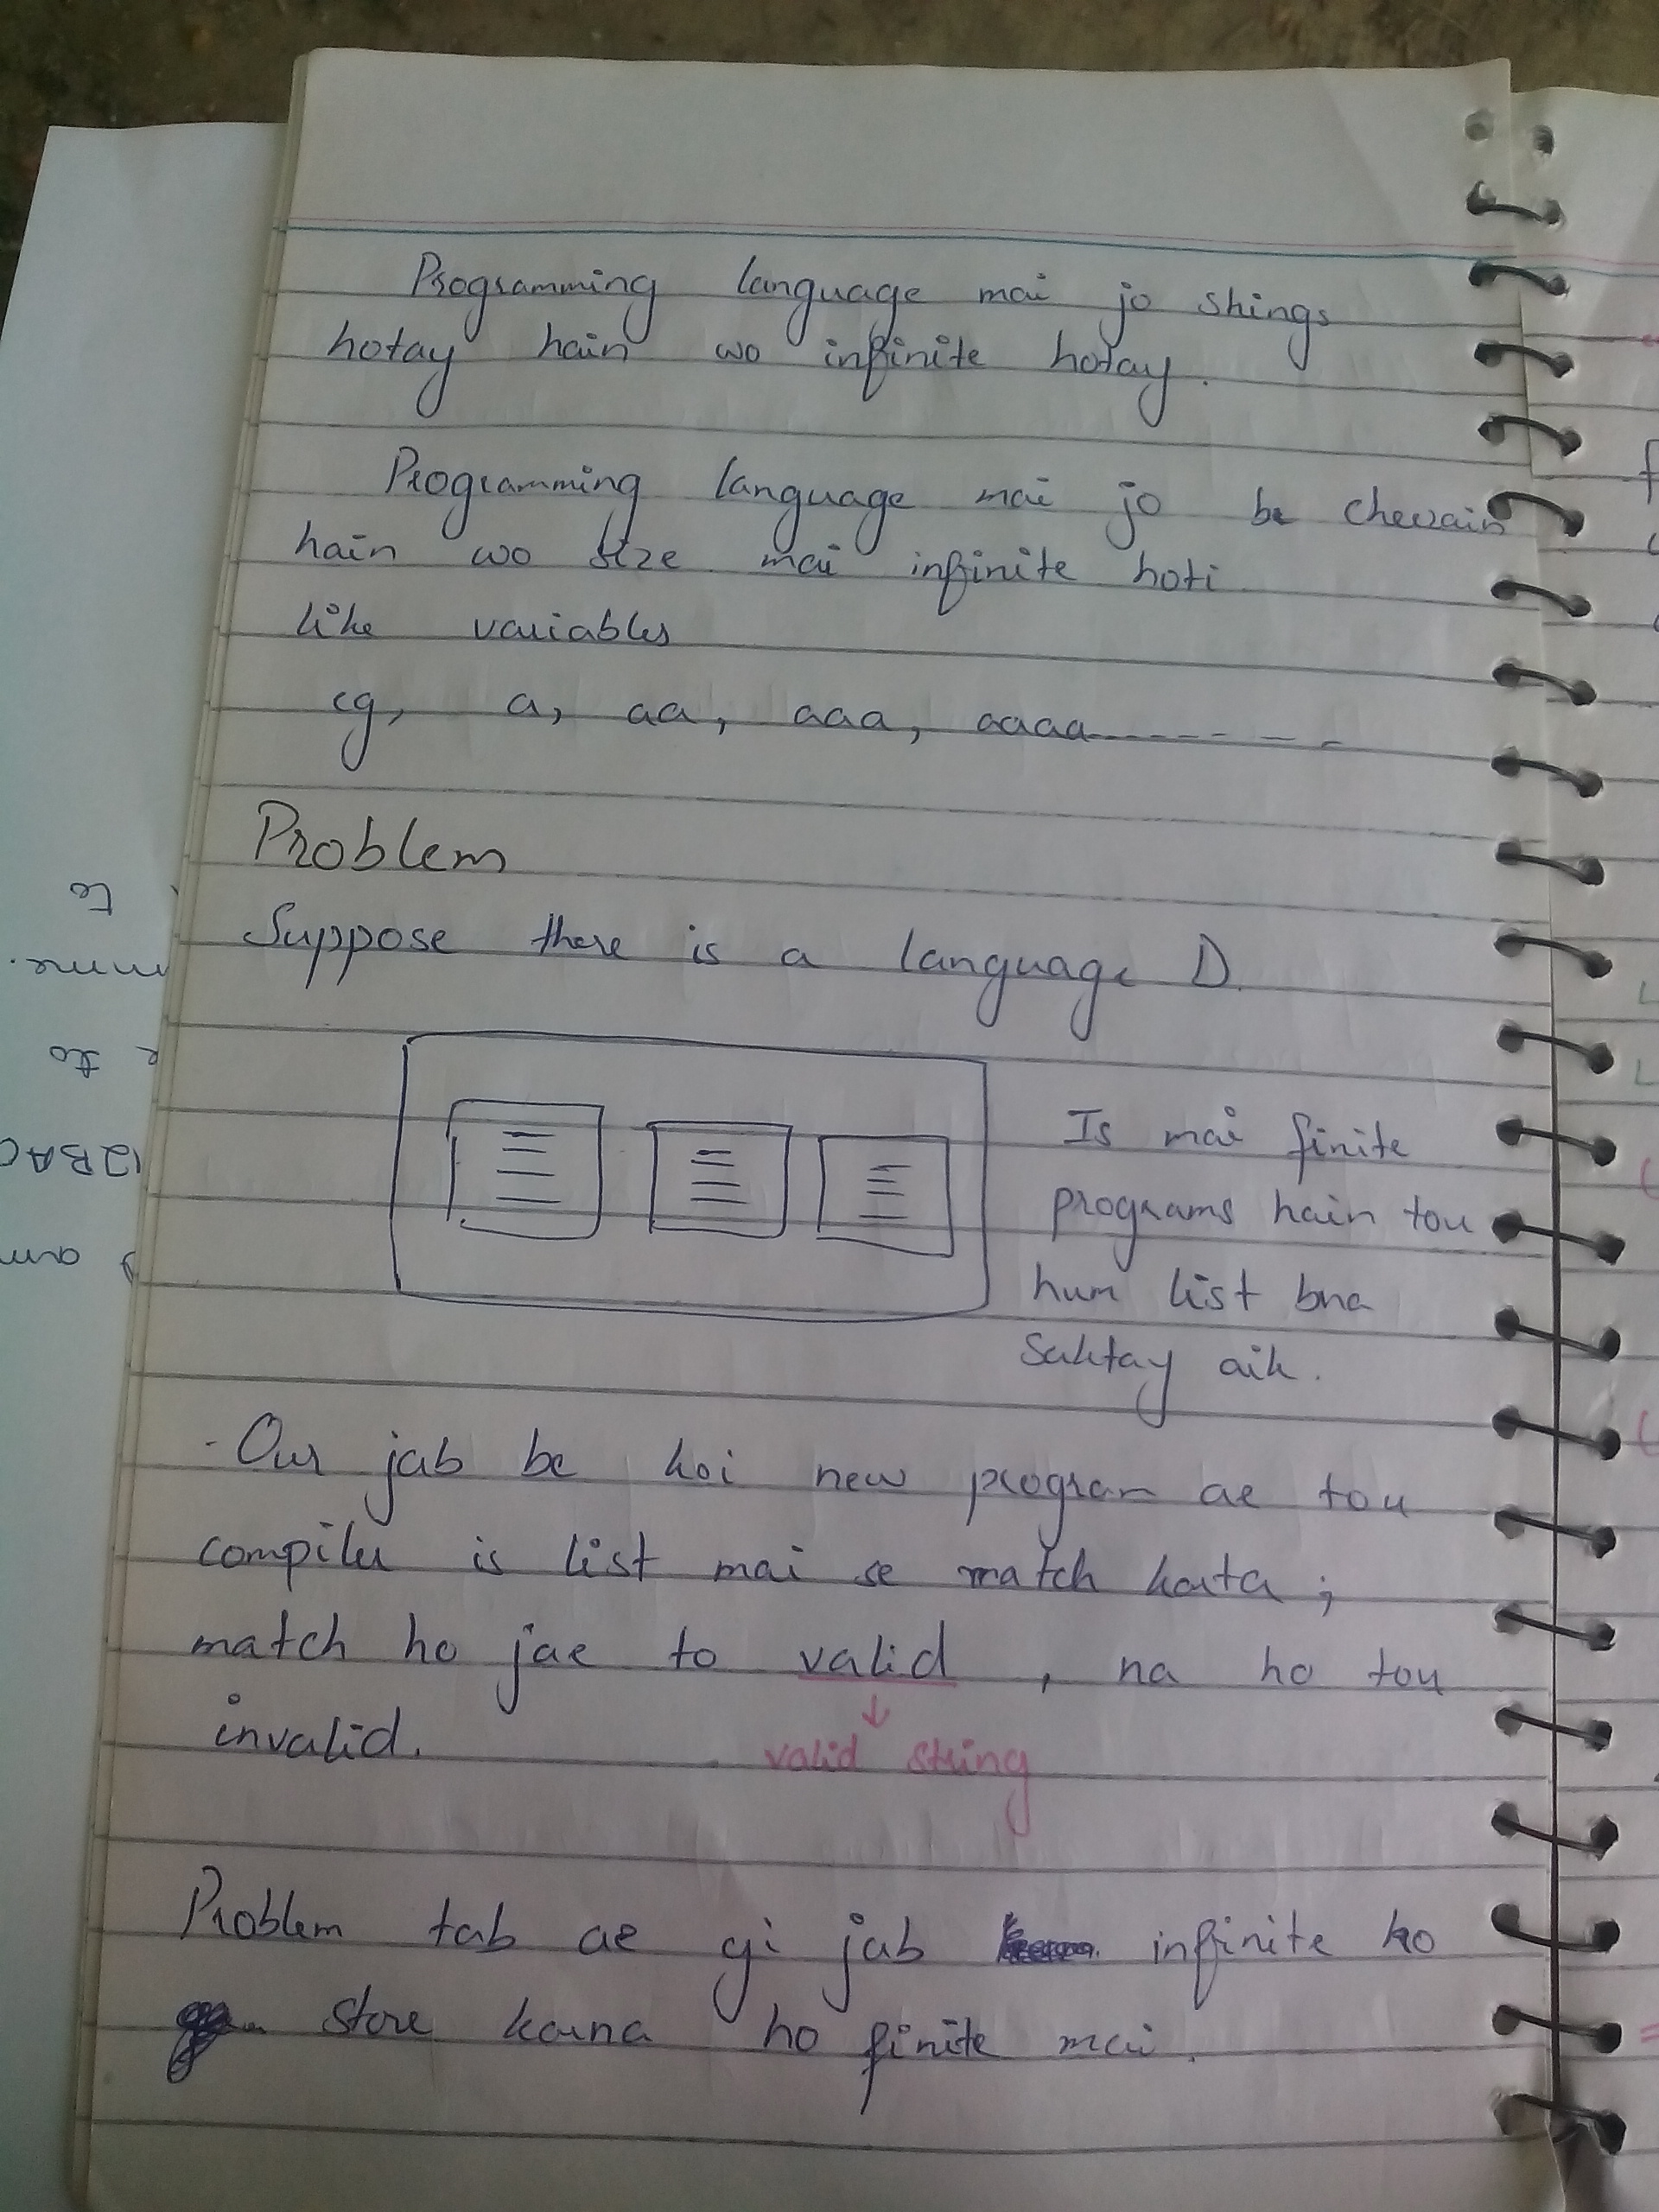 Programming language mai jo strings
hotay hain wo infinite hotay.
Programming language mai jo be cheezain
hain wo size mai infinite hoti
like variables
eg, a, aa, aaa, aaaa-------
Problem
Suppose there is a language D.
Is mai finite
programs hain tou
hum list bna
saktay aik.
- Our jab be koi new program ae tou
compiler is list mai se match karta ;
match ho jae to valid , na ho tou
↓
invalid.
valid string
Problem tab ae gi jab infinite ko
store karna ho finite mai.
to
e to
12BAC
am